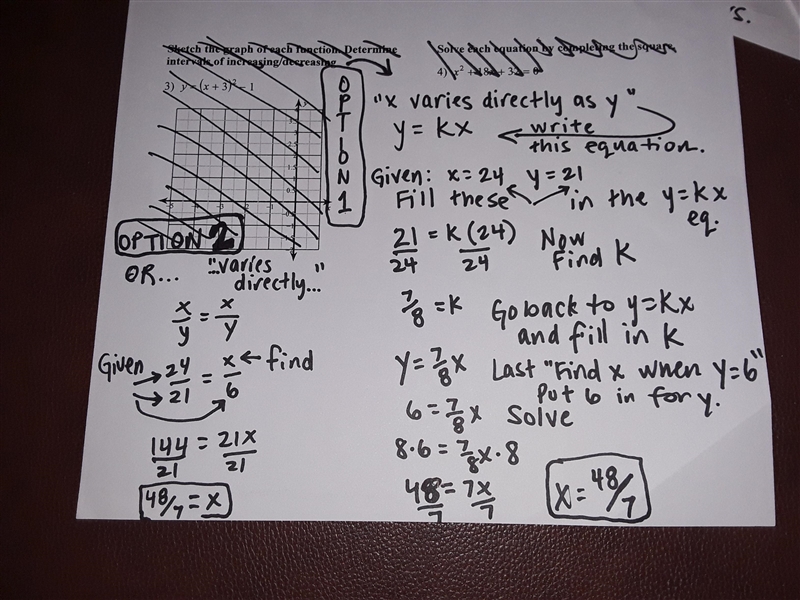 5.
Sketch the graph of each function. Determine
intervals of increasing/decreasing
3) y = (x + 3)² − 1
OPTION 1
OPTION 2
OR...
"...varies
directly..."
x/y = x/y
Given → 24/21 = x/6 ← find
144/21 = 21x/21
48/7 = x
Solve each equation by completing the square.
4) x² + 18x + 32 = 0
"x varies directly as y"
y = kx
write
this equation.
Given: x = 24 y = 21
Fill these in the y=kx
eq.
21/24 = k(24)/24 Now
find K
7/8 = k Go back to y=kx
and fill in k
y = 7/8 x Last "Find x when y=6"
Put 6 in for y.
6 = 7/8 x Solve
8·6 = 7/8 x·8
48/7 = 7x/7
x = 48/7